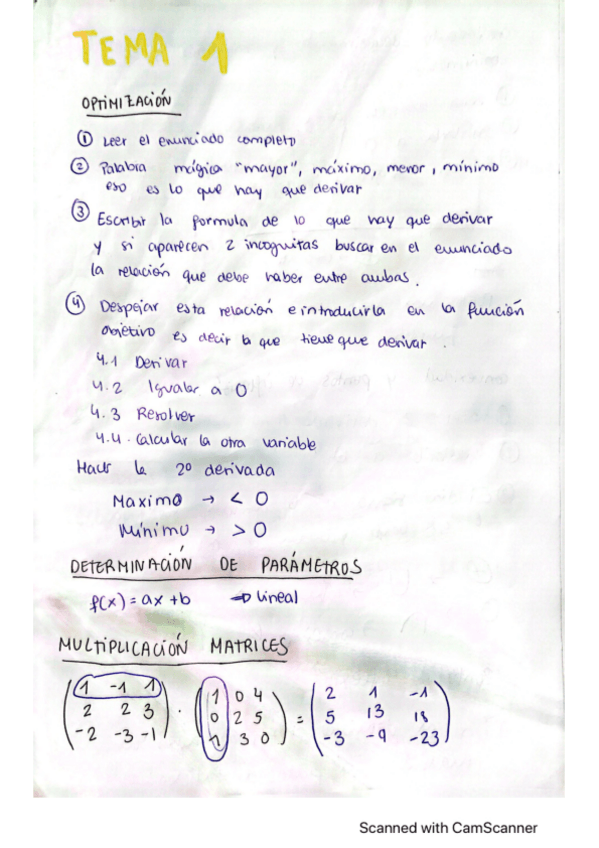 TEMA 1
OPTIMIZACIÓN
① Leer el enunciado completo
② Palabra mágica "mayor", máximo, menor, mínimo
eso es lo que hay que derivar
③ Escribir la formula de lo que hay que derivar
y si aparecen 2 incognitas buscar en el enunciado
la relación que debe haber entre ambas.
④ Despejar esta relación e introducirla en la función
objetivo es decir la que tiene que derivar.
4.1 Derivar
4.2 Igualar a 0
4.3 Resolver
4.4. Calcular la otra variable
la 2º derivada
Maximo → < 0
Mínimo → > 0
DETERMINACIÓN DE PARÁMETROS
f(x) = ax + b → Lineal
MULTIPLICACIÓN MATRICES
1 -1 1 1 0 4 2 1 -1
2 2 3 · 0 2 5 = 5 13 18
-2 -3 -1 1 3 0 -3 -9 -23
Scanned with CamScanner